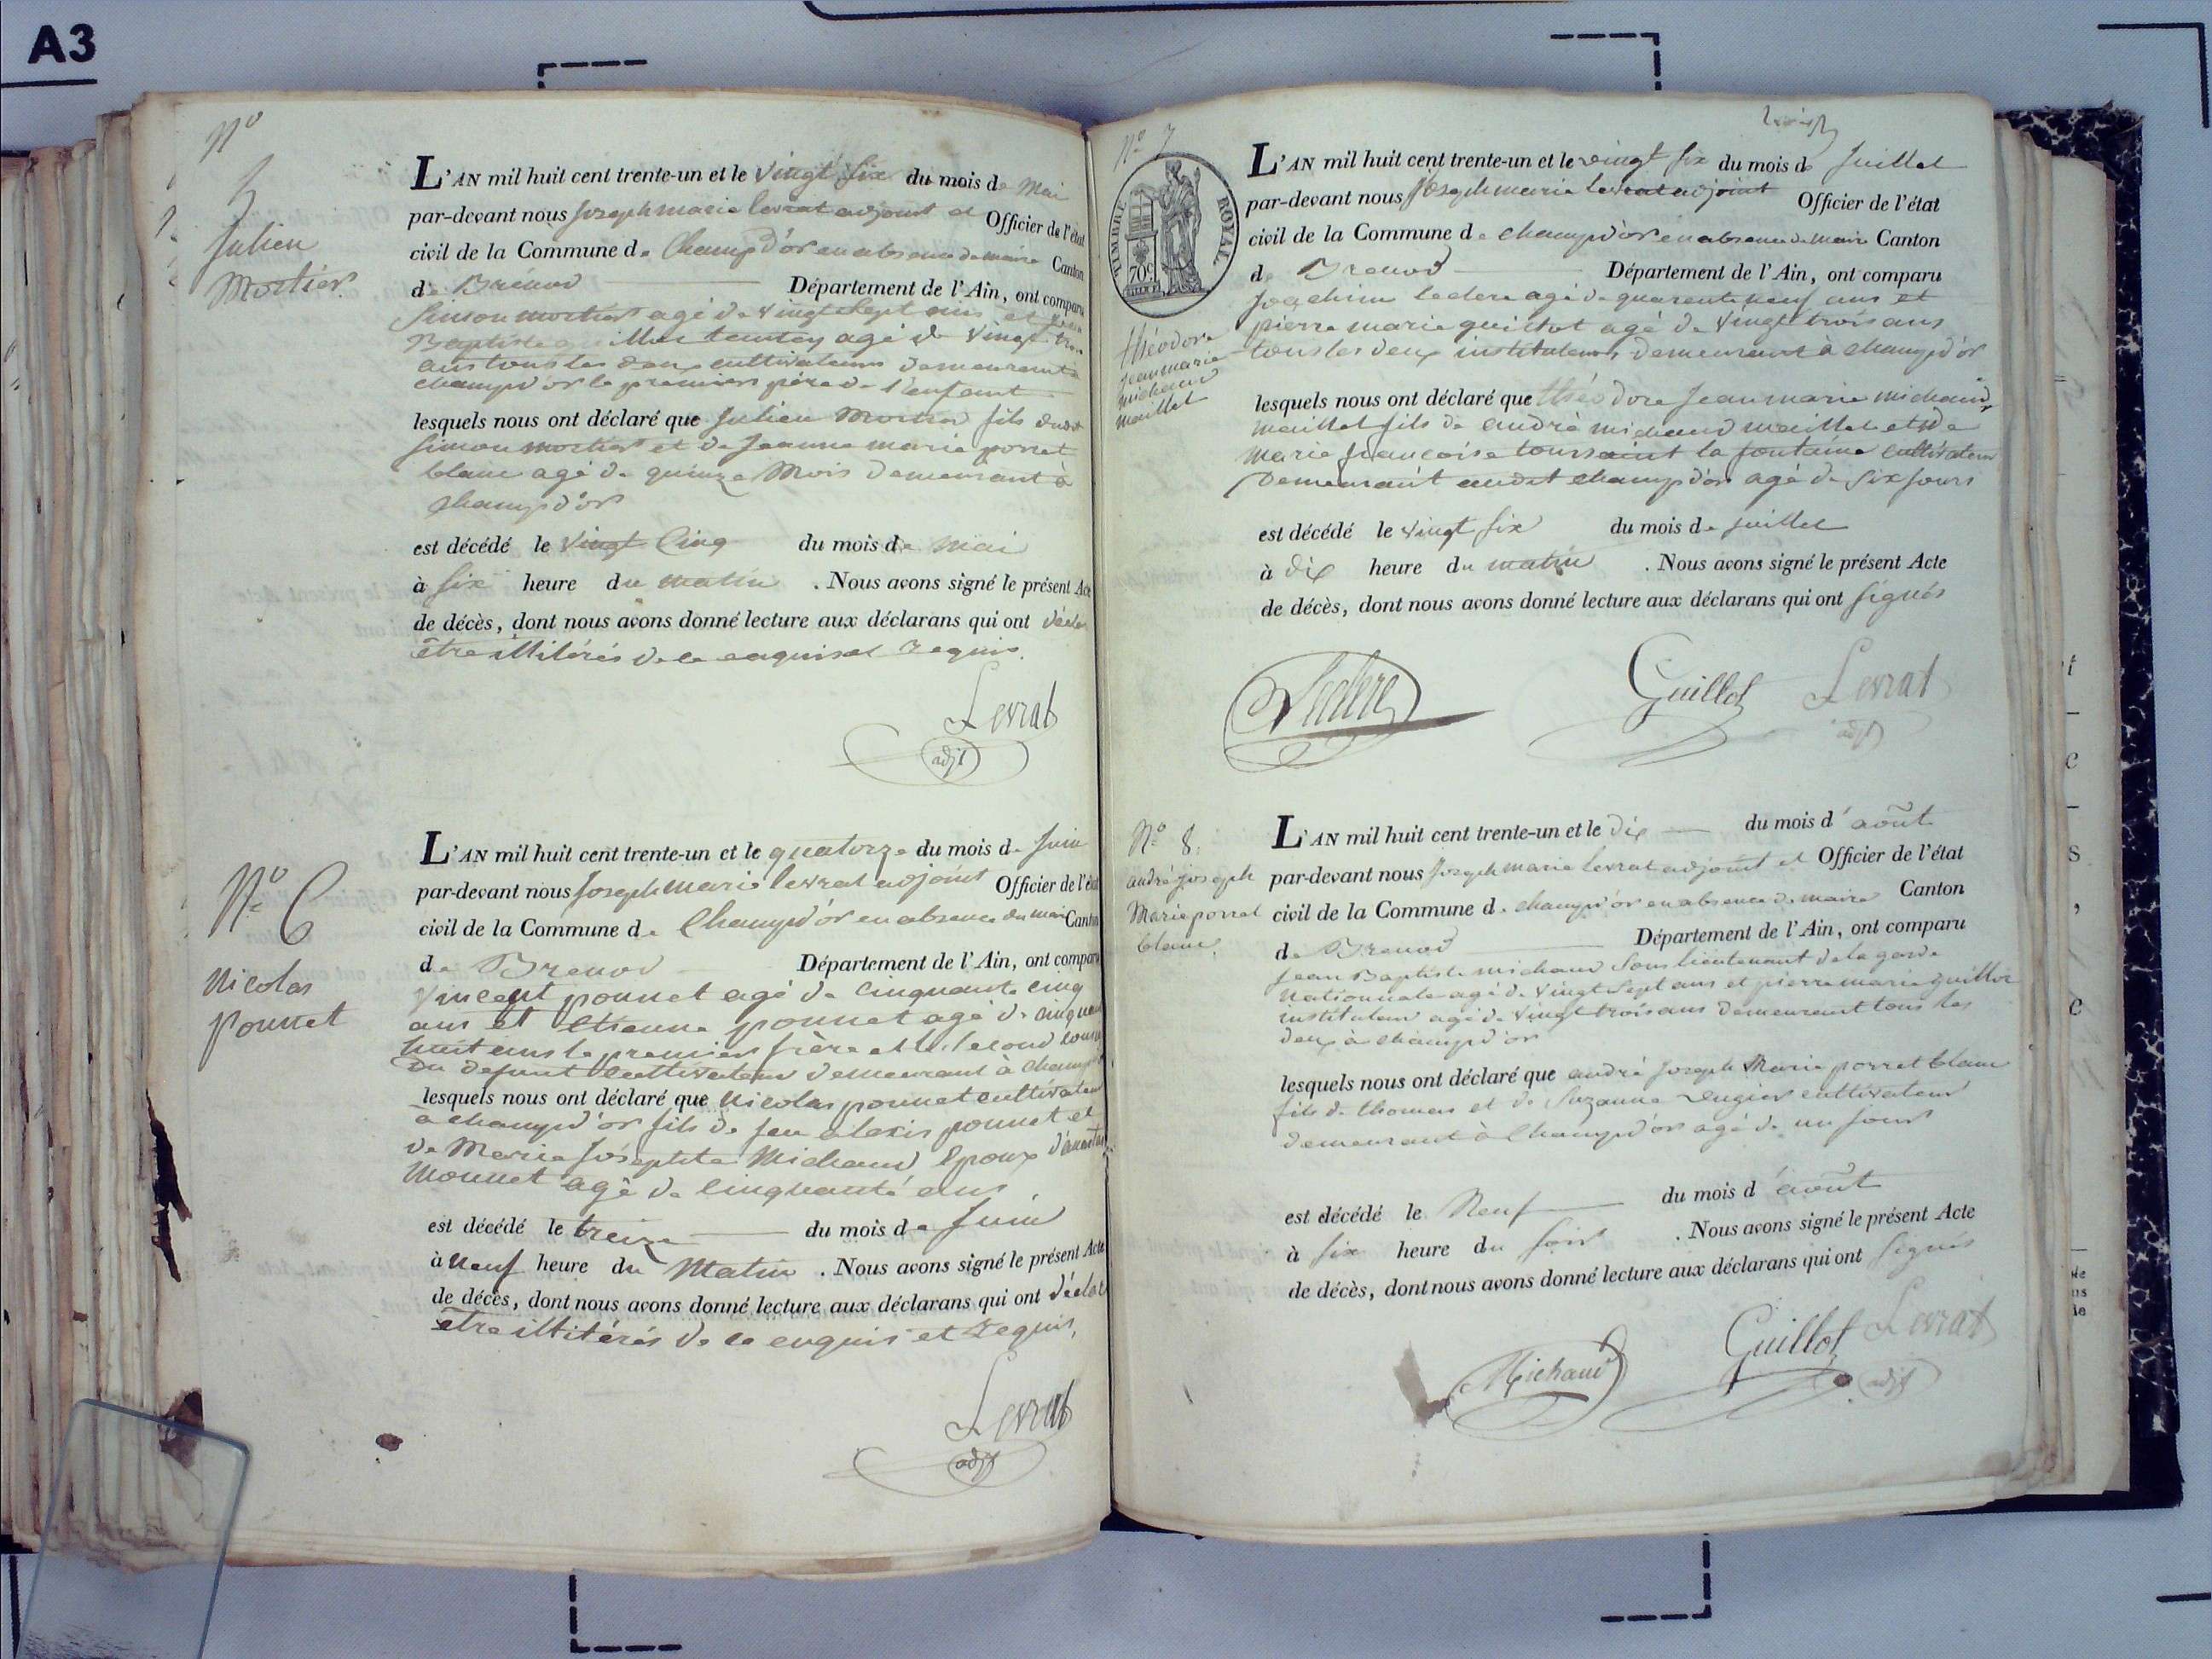 A3
N°
5
Julien
Mortier
L'AN mil huit cent trente-un et le vingt six du mois de Mai
par-devant nous Joseph marie levrat adjoint et Officier de l'état
civil de la Commune de Champd'or en absence de maire Canton
de Brénod Département de l'Ain, ont comparu
Simon mortier agé de vingt sept ans et
Baptiste agé de vingt
ans tous les deux cultivateurs demeurants
champd'or le premier père de l'enfant
lesquels nous ont déclaré que Julien Mortier fils dudit
Simon mortier et de Jeanne marie porret
blanc agé de quinze Mois demeurant à
Champd'or
est décédé le vingt Cinq du mois de mai
à six heure du matin . Nous avons signé le présent Acte
de décès, dont nous avons donné lecture aux déclarans qui ont déclaré
être illitérés de ce enquis et requis.
Levrat
adjt
N° 6
Nicolas
Ponnet
L'AN mil huit cent trente-un et le quatorze du mois de Juin
par-devant nous Joseph Marie levrat adjoint Officier de l'état
civil de la Commune de Champd'or en absence du maire Canton
de Brenod Département de l'Ain, ont comparu
Vincent ponnet agé de cinquante cinq
ans et Etienne ponnet agé de cinquante
huit ans le premier frère et le second cousin
du defunt Cultivateurs demeurant à Champd'or
lesquels nous ont déclaré que Nicolas ponnet cultivateur
à champd'or fils de feu alexis ponnet et
de Marie Joséphte Michaud Epoux
Monnet agé de Cinquante ans
est décédé le treize du mois de Juin
à Neuf heure du Matin . Nous avons signé le présent Acte
de décès, dont nous avons donné lecture aux déclarans qui ont déclaré
être illitérés de ce enquis et requis.
Levrat
adjt
N° 7
TIMBRE ROYAL
70c
théodore
jean marie
michaud
maillet
L'AN mil huit cent trente-un et le vingt six du mois de Juillet
par-devant nous Joseph marie levrat adjoint Officier de l'état
civil de la Commune de champd'or en absence de maire Canton
de Brenod Département de l'Ain, ont comparu
Joachim leclerc agé de quarente neuf ans et
pierre marie guillot agé de vingt trois ans
tous les deux instituteurs demeurant à champd'or
lesquels nous ont déclaré que théodore Jean marie michaud
maillet fils de andré michaud maillet et de
marie françoise toursaint la fontaine cultivateur
Demeurant audit champd'or agé de six jours
est décédé le vingt six du mois de juillet
à dix heure du matin . Nous avons signé le présent Acte
de décès, dont nous avons donné lecture aux déclarans qui ont signés
Leclerc
Guillot
Levrat
adjt
N° 8.
andré joseph
Marie porret
blanc
L'AN mil huit cent trente-un et le dix du mois d'août
par-devant nous Joseph marie levrat adjoint et Officier de l'état
civil de la Commune de champd'or en absence de maire Canton
de Brenod Département de l'Ain, ont comparu
Jean Baptiste michaud Sous lieutenant de la garde
Nationnale agé de vingt sept ans et pierre marie guillot
instituteur agé de vingt trois ans demeurant tous les
deux à champd'or
lesquels nous ont déclaré que andré joseph Marie porret blanc
fils de thomas et de Suzanne cultivateur
demeurant à Champd'or agé de un jour
est décédé le Neuf du mois d'août
à six heure du soir . Nous avons signé le présent Acte
de décès, dont nous avons donné lecture aux déclarans qui ont signés
Michaud
Guillot
Levrat
adjt